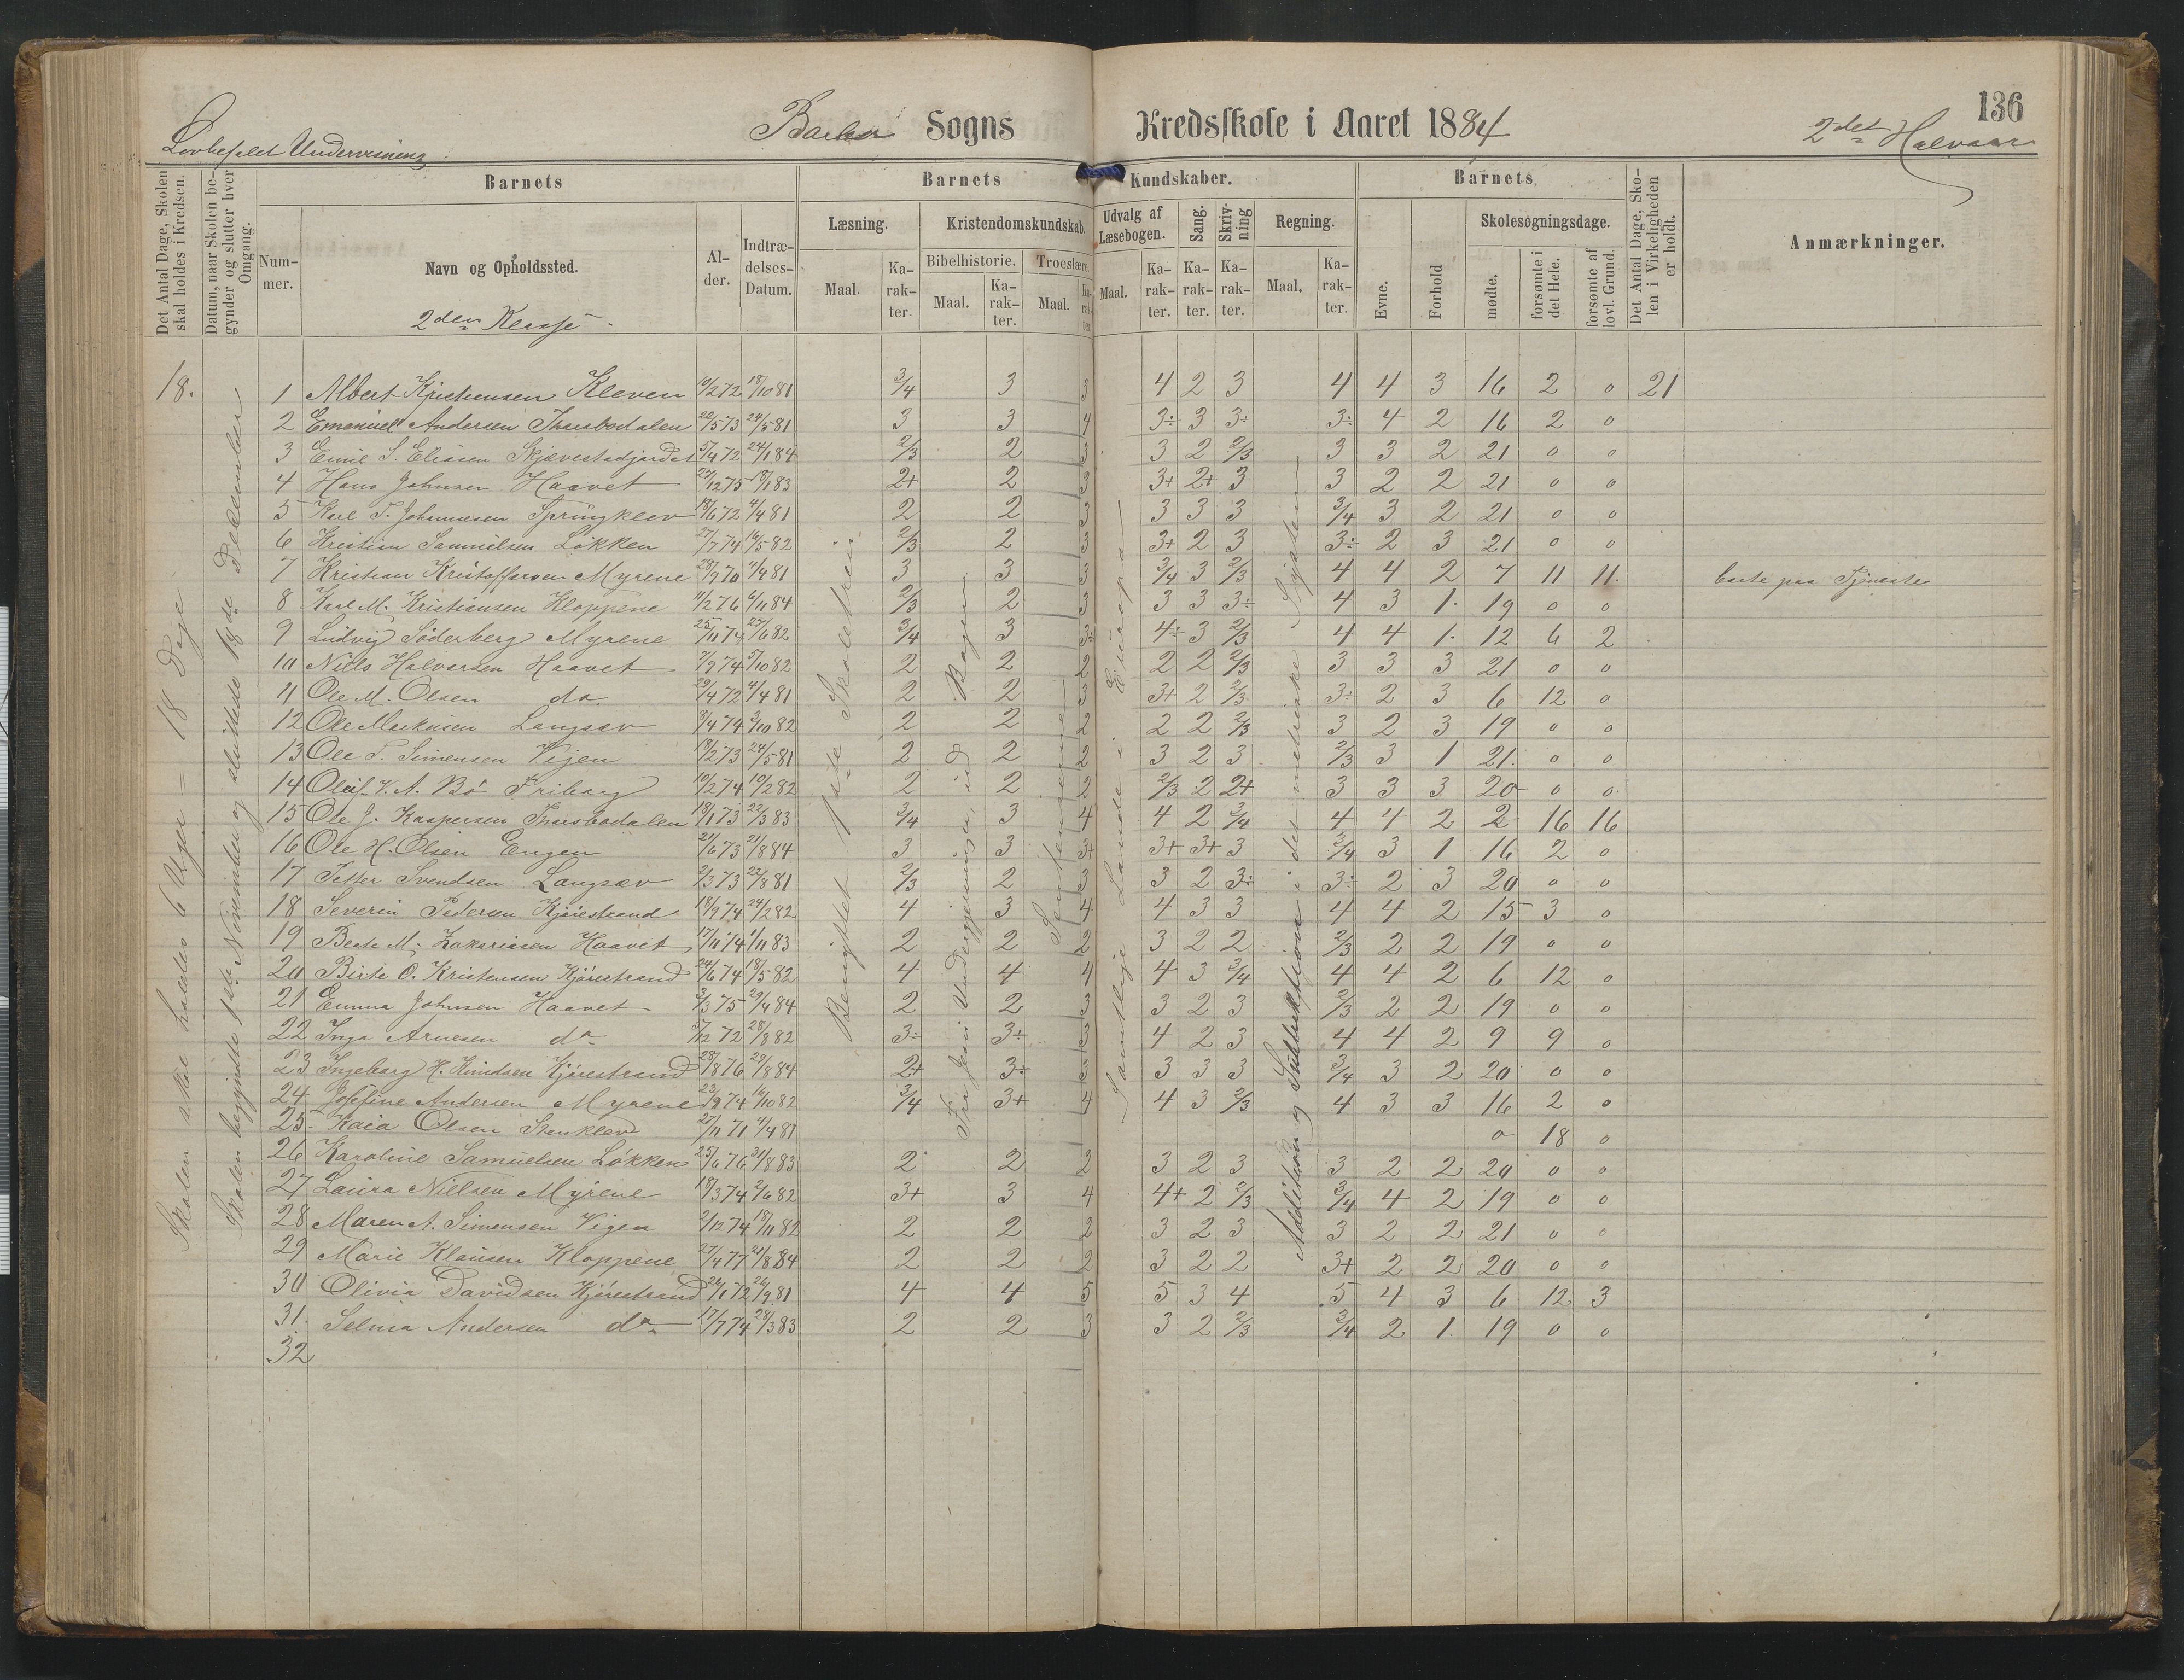 136
Lovbefalet Undervisning
Barbo Sogns Kredsskole i Aaret 1884
2det Halvaar
Det Antal Dage, Skolen skal holdes i Kredsen.
Datum, naar Skolen begynder og slutter hver Omgang.
Barnets
Nummer.
Navn og Opholdssted.
2den Klasse
Alder.
Indtrædelses-Datum.
Barnets Kundskaber.
Læsning.
Maal.
Karakter.
Kristendomskundskab.
Bibelhistorie.
Maal.
Karakter.
Troeslære.
Maal.
Karakter.
Udvalg af Læsebogen.
Maal.
Karakter.
Sang.
Karakter.
Skrivning
Karakter.
Regning.
Maal.
Karakter.
Barnets
Evne.
Forhold
Skolesøgningsdage.
mødte.
forsømte i det Hele.
forsømte af lovl. Grund.
Det Antal Dage, Skolen i Virkeligheden er holdt.
Anmærkninger.
18.
Skolen skal holdes 6 Uger = 18 Dage
Skolen begyndte 1ste November og sluttede 18de December
Benyttet 1ste Skoletrin
Fra Jesu Undergjerninger, ud Bogen
Samtlige Lande i Europa
Addition og Subtraktion i det metriske System
1 Albert Kristensen Kleven 10/2 72 18/10 81 3/4 3 3 4 2 3 4 4 3 16 2 0 21
2 Emanuel Andersen Thorsbodalen 22/5 73 24/5 81 3 3 4 3÷ 3 3÷ 3÷ 4 2 16 2 0
3 Emil S. Eliasen 5/4 72 24/1 84 2/3 2 3 3 2 2/3 3 3 2 21 0 0
4 Hans Johnsen Haavet 27/12 75 18/1 83 2+ 2 3 3+ 2+ 3 3 2 2 21 0 0
5 Karl T. Johannesen Springklev 18/6 72 4/4 81 2 2 3 3 3 3 3/4 3 2 21 0 0
6 Kristian Samuelsen Løkken 27/7 74 16/5 82 2/3 2 3 3+ 2 3 3÷ 2 3 21 0 0
7 Kristian Kristoffersen Myrene 28/9 70 4/4 81 3 3 3 3/4 3 2/3 4 4 2 7 11 11. paa Tjeneste
8 Karl M. Kristiansen Kloppene 11/2 76 6/11 84 2/3 2 3 3 3 3÷ 4 3 1. 19 0 0
9 Ludvig Søderberg Myrene 25/11 74 27/6 82 3/4 3 3÷ 4÷ 3 2/3 4 4 1. 12 6 2
10 Niels Halvorsen Haavet 7/9 74 5/10 82 2 2 2 2 2 2/3 3 3 3 21 0 0
11 Ole M. Olsen do 29/4 72 4/4 81 2 2 3 3+ 2 2/3 3÷ 2 3 6 12 0
12 Ole Markusen Langsæv 3/4 74 3/10 82 2 2 2 2 2 2/3 3 2 3 19 0 0
13 Ole T. Simensen Vigen 18/2 73 24/5 81 2 2 2 3 2 3 2/3 3 1 21. 0 0
14 Oluf K. A. Bø Friborg 10/2 74 10/2 82 2 2 2 2/3 2 2+ 3 3 3 20 0 0
15 Ole J. Kaspersen Thorsbodalen 18/1 73 22/3 83 3/4 3 4 4 2 3/4 4 4 2 2 16 16
16 Ole H. Olsen Engen 21/6 73 21/8 84 3 3 3+ 3+ 3+ 3 3/4 3 1 16 2 0
17 Petter Svendsen Langsæv 2/3 73 22/8 81 2/3 2 3 3 2 3÷ 3÷ 2 3 20 0 0
18 Severin Pedersen Kjørestrand 18/9 74 24/2 82 4 3 4 4 3 3 4 4 2 15 3 0
19 Beate M. Zakariasen Haavet 17/11 74 1/11 83 2 2 2 3 2 2 2/3 2 2 19 0 0
20 Birte O. Kristensen Kjørestrand 24/6 74 18/5 82 4 4 4 4 3 3/4 4 4 2 6 12 0
21 Emma Johnsen Haavet 3/3 75 29/4 84 2 2 3 3 2 3 2/3 2 2 19 0 0
22 Inga Arnesen do 5/12 72 28/8 82 3÷ 3÷ 3 4 2 3 4 4 2 9 9 0
23 Ingeborg H. Kjørestrand 28/8 76 29/8 84 2+ 3÷ 3 3 3 3 3/4 3 2 20 0 0
24 Josefine Andersen Myrene 23/9 74 16/10 82 3/4 3+ 4 4 3 2/3 4 3 3 16 2 0
25 Kaia Olsen Stenklev 27/11 71 4/4 81 0 18 0
26 Karoline Samuelsen Løkken 25/6 76 31/8 83 2 2 2 3 2 3 3 2 2 20 0 0
27 Laura Nielsen Myrene 18/3 74 2/6 82 3+ 3 4 4+ 2 2/3 3/4 4 2 19 0 0
28 Maren A. Simensen Vigen 2/12 74 18/11 82 2 2 2 3 2 3 3 2 2 21 0 0
29 Marie Klausen Kloppene 27/4 77 21/8 84 2 2 2 3 2 2 3+ 2 2 20 0 0
30 Olivia Davidsen Kjørestrand 24/1 72 26/9 81 4 4 5 5 3 4 5 4 3 6 12 3
31. Selma Andersen do 17/7 74 28/3 83 2 2 3 3 2 2/3 3/4 2 1. 19 0 0
32